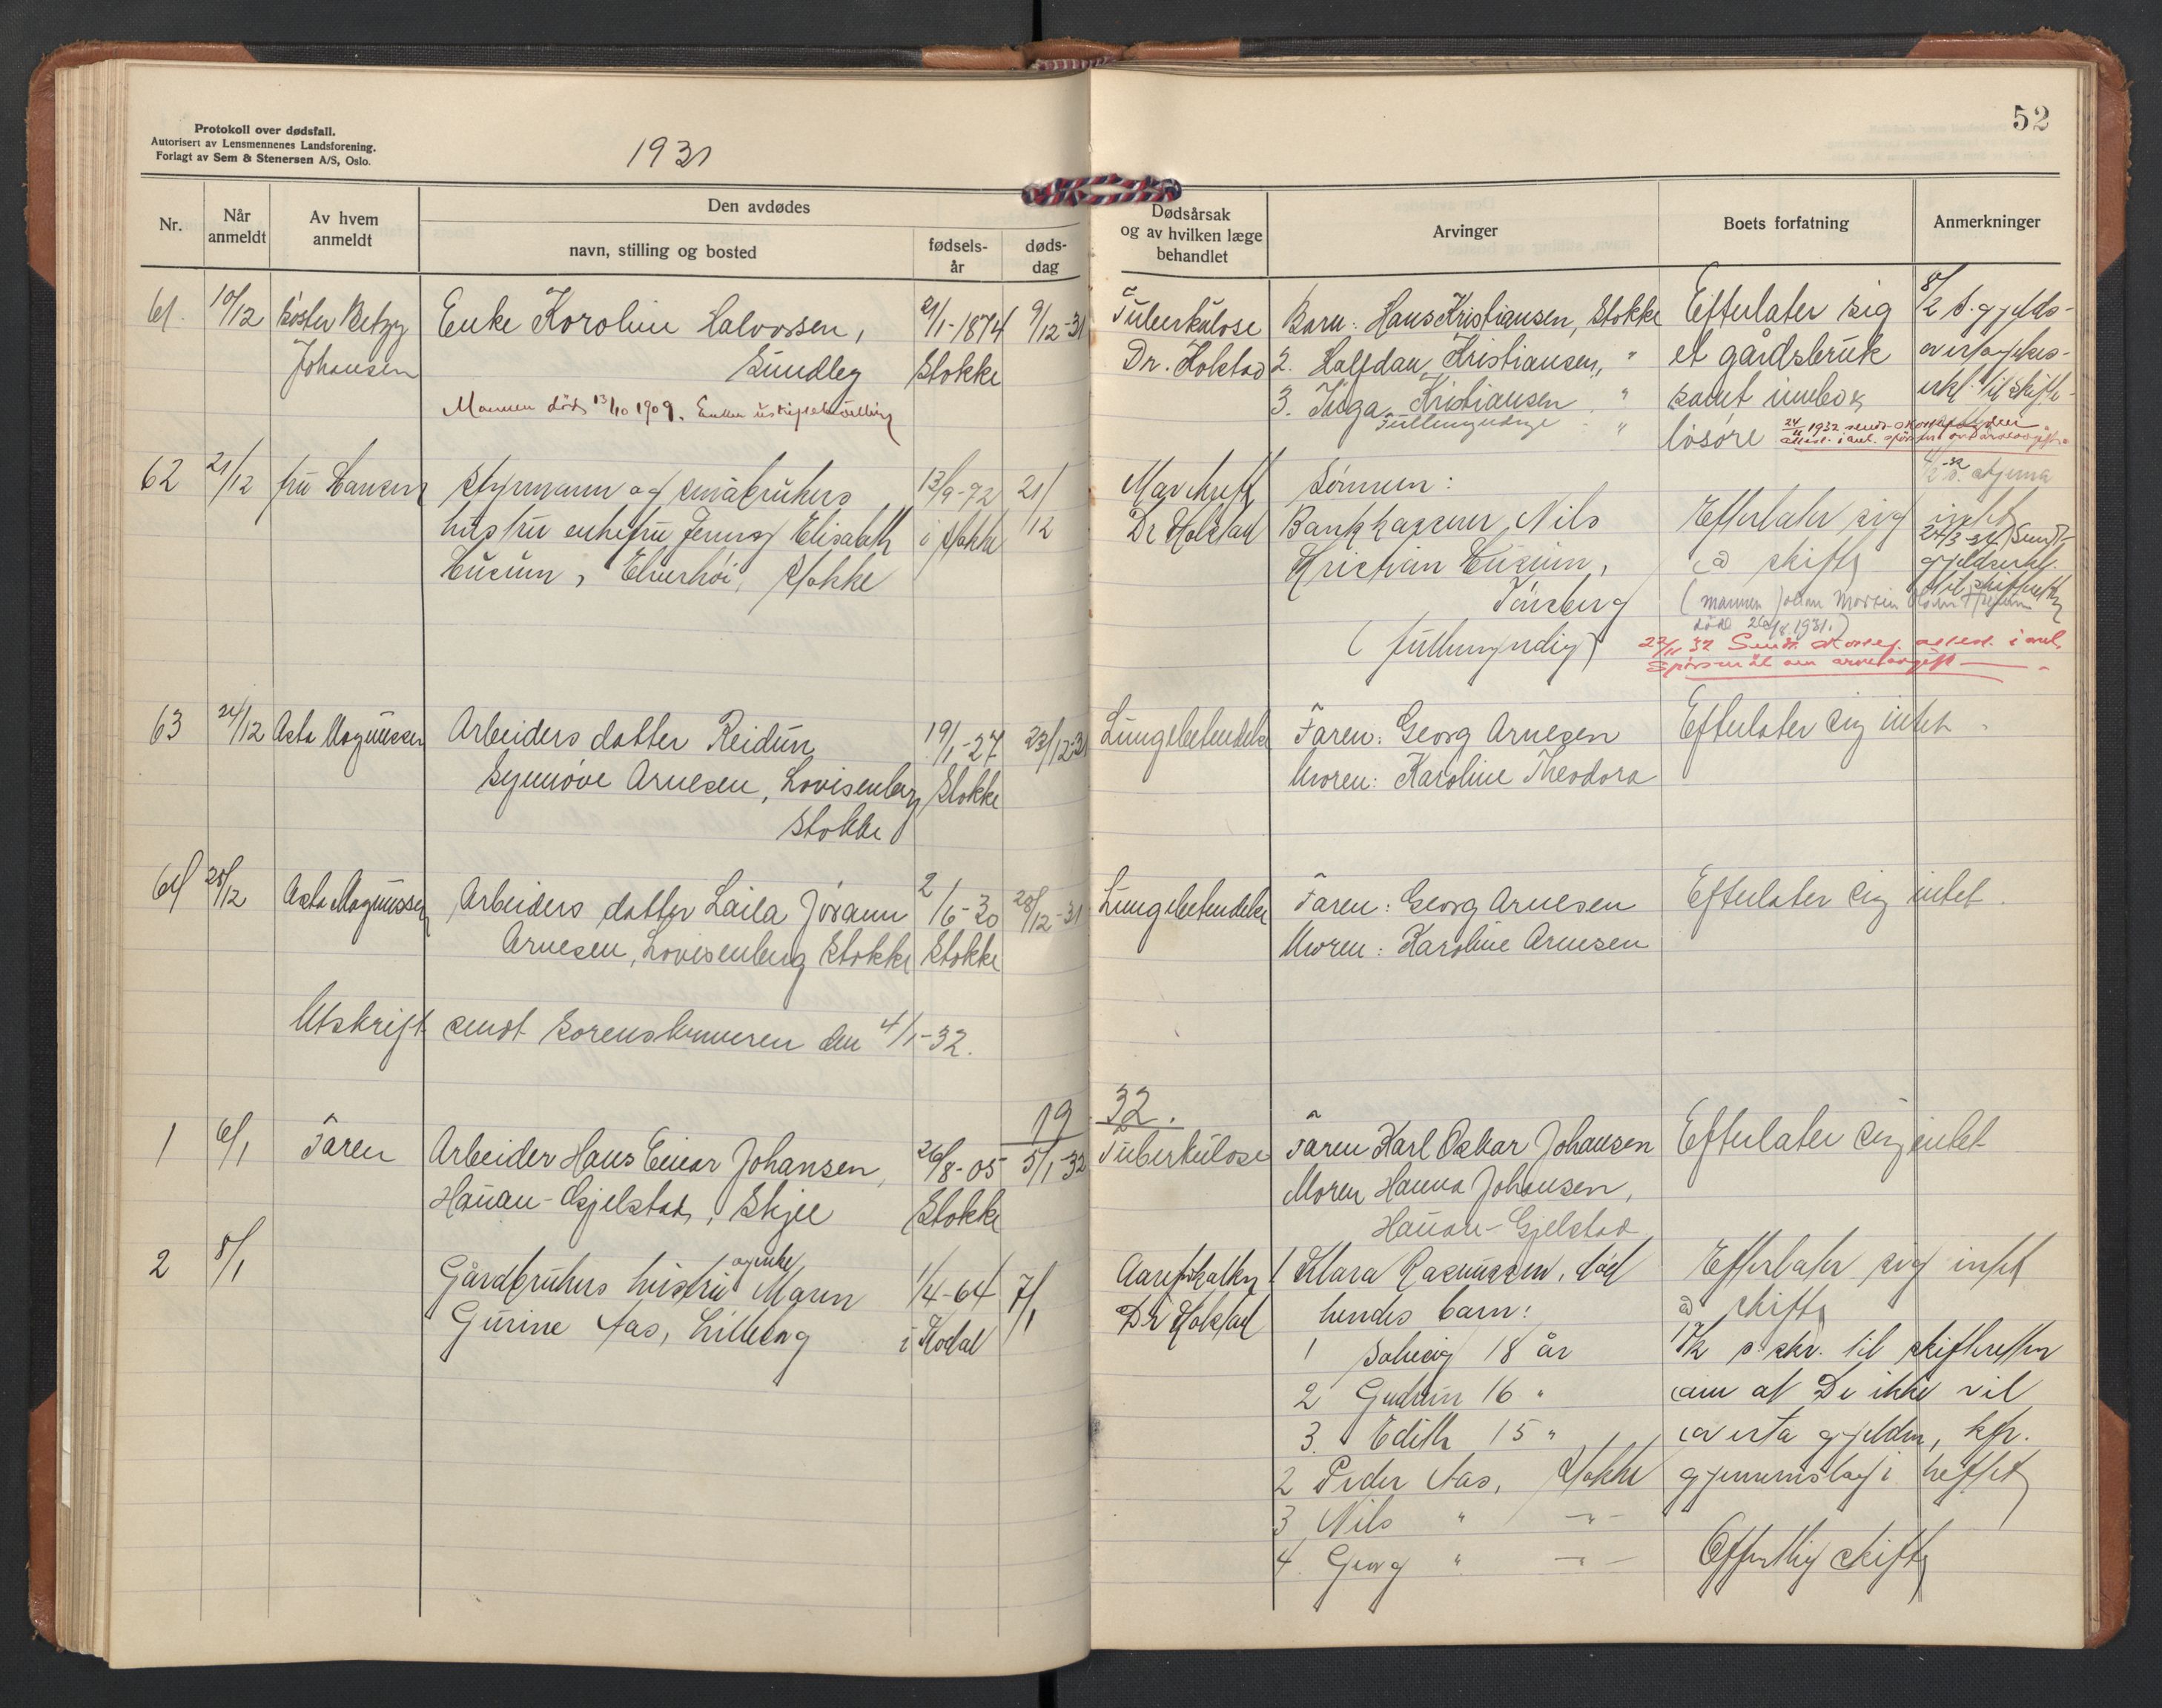 Protokoll over dødsfall.
Autorisert av Lensmennenes Landsforening.
Forlagt av Sem & Stenersen A/S, Oslo.
1931
52
Nr.
Når anmeldt
Av hvem anmeldt
Den avdødes
navn, stilling og bosted
fødsels-år
døds-dag
Dødsårsak og av hvilken læge behandlet
Arvinger
Boets forfatning
Anmerkninger
61. 10/12 Søster Betzy Enke Karoline Halvorsen, 21/1-1874 9/12-31 Tuberkulose Barn: Hans Kristiansen, Stokke Efterlater sig 8/2 s. gjelds-
Johansen Sundleg Stokke Dr. Holstad 2. Halfdan Kristiansen, " et gårdsbruk overtagelses-
Mannen død 13/10 1909. Enken i uskiftet bo 3. Inga Kristiansen " samt innbo & erkl. til skifte-
Fuldmyndige " løsøre
62 21/12 fru Hansen Styrmann og småbrukers 13/9-92 21/12 Dr Holstad Sønnen:
hustru enkefru Jenny Elisabeth i Stokke Bankkasserer Nils Efterlater sig intet
Husum, Elverhøi, Stokke Kristian Husum, à skifte
Tønsberg
(fullmyndig)
(mannen Johan Morten
død 26/8 1931.)
22/11 32 Sendt attest. i anl.
spørsmål om arveavgift
63 24/12 Asta Magnussen Arbeiders datter Reidun 19/1-27 23/12-31 Lungebetendelse Faren: Georg Arnesen Efterlater sig intet
Synnøve Arnesen, Lovisenberg Stokke Moren: Karoline Theodora
Stokke
64 28/12 Asta Magnussen Arbeiders datter Laila Jorann 2/6-30 28/12-31 Lungebetendelse Faren: Georg Arnesen Efterlater sig intet.
Arnesen, Lovisenberg Stokke Stokke Moren: Karoline Arnesen
Utskrift sendt Sorenskriveren den 4/1-32.
19 32.
1 6/1 Faren Arbeider Hans Einar Johansen, 26/8-05 5/1-32 Tuberkulose Faren Karl Oskar Johansen Efterlater sig intet
Hauan-Gjelstad, Skjee Stokke Moren Hanna Johansen,
Hauan-Gjelstad
2 8/1 Gårdbrukers hustru og enke Maren 1/4-64 7/1 Aareforkalkn 1 Klara Rasmussen, død Efterlater sig intet
Gurine Aas, Lilleberg i Kodal Dr Holstad hendes barn: à skifte
1 Solveig 18 år s. skr. til skifteretten
2 Gudrun 16 " om at De ikke vil
3. Edith 15 " overta gjelden, kfr.
2 Peder Aas, Stokke gjennemslag i heftet
3 Nils " -"-
4. Georg " -"- Offentlig skifte